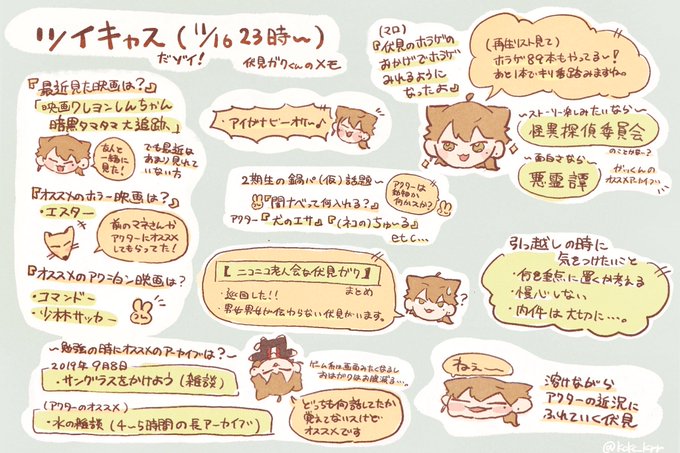 ツイキャス(11/16 23時〜)
だゾイ!
伏見ガクくんのメモ
『最近見た映画は?』
「映画クレヨンしんちゃん
暗黒タマタマ大追跡」
なんと
一緒に
見た!
でも最近は
あまり見れて
いない方
『オススメのホラー映画は?』
・エスター
前のマネさんや
アクターにオススメ
してもらってた!
『オススメのアクション映画は?』
・コマンドー
・少林サッカー
〜勉強の時にオススメのアーカイブは?〜
2019年9月8日
・サングラスをかけよう(雑談)
(アクターのオススメ)
・水の雑談(4〜5時間の長アーカイブ)
・アイがナビーオル〜♪
2期生の鍋パ(仮)話題〜
『闇ナベって何入れる?』
アクター『犬のエサ』『(ネコの)ちゅ〜る』
etc…
アクターは
動物か
何かっスか?
【ニコニコ老人会な伏見ガク】
まとめ
・巡回した!!
・男女男女が伝わらない伏見がいます。
ゲーム系は画面みたくなるし
おはガクはお腹減る…。
どっちも何話してたか
覚えてないっスけど
オススメです
(マロ)
『伏見のホラゲの
おかげでホラゲ
みれるように
なったよ』
(再生リスト見て)
ホラゲ89本もやってる〜!
あと1本でキリ番踏みますね。
〜ストーリー楽しみたいなら〜
怪異探偵委員会
のことかな〜?
〜面白さなら〜
悪霊譚
がっくんの
オススメアーカイブ!!
引っ越しの時に
気をつけたいこと
・何を重点に置くか考える
・慢心しない
・内件は大切に…。
ねぇ〜
溶けながら
アクターの近況に
ふれていく伏見